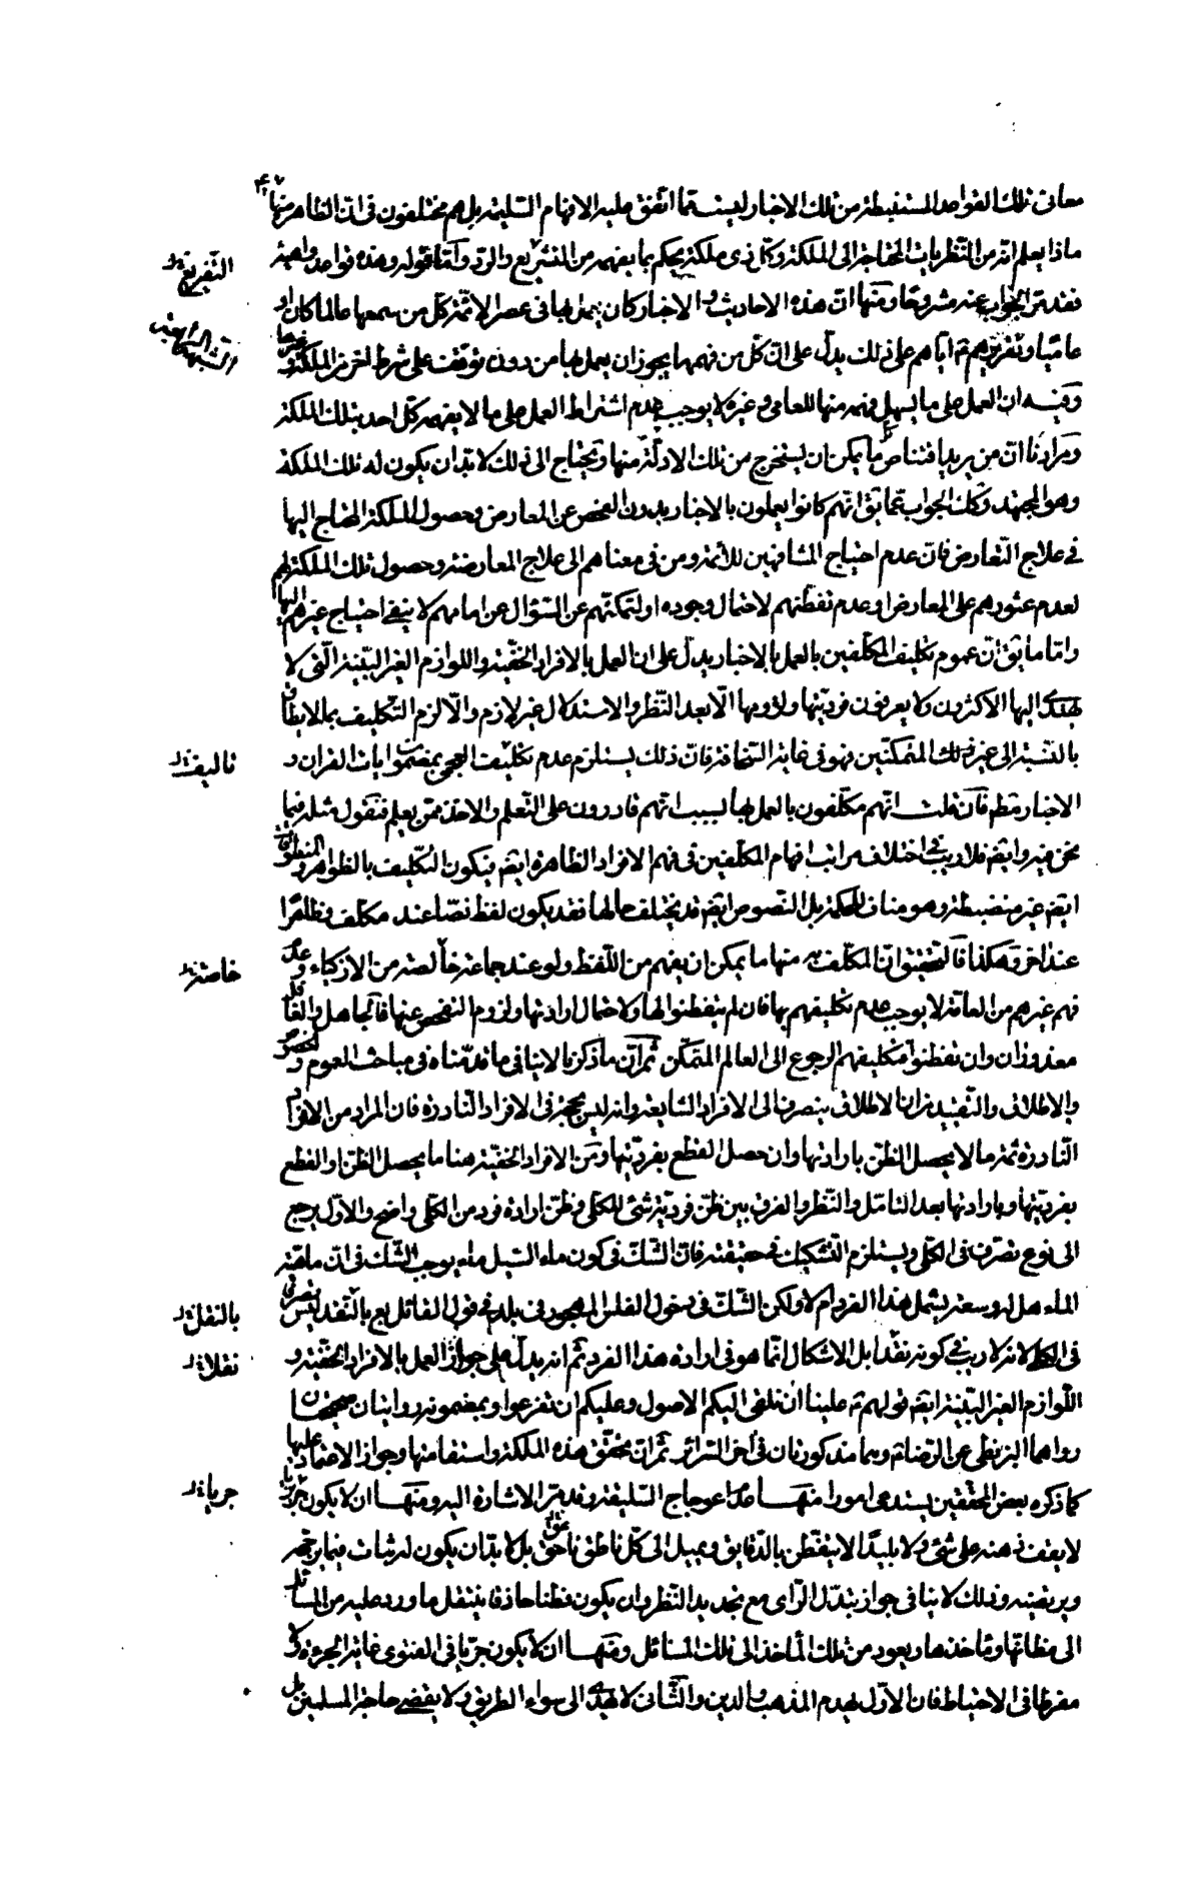 معانى تلك القواعد المستنبطة من تلك الاخبار ليست مما اتفق عليه الافهام السليمة بل هم مختلفون فى ان الظاهر منها
ماذا يعلم انه من النظريات المحتاجة الى الملكة وكل ذى ملكة يحكم بما يفهمه من التفريع والرد واما قوله وهذه قواعد واضحة
فقد مر الجواب عنه مشروحا ومنها ان هذه الاحاديث والاخبار كان يعمل بها فى عصر الائمة كل من سمعها عالما كان او
عاميا وتقريرهم ع اياهم على ذلك يدل على ان كل من فهمها يجوز ان يعمل بها من دون توقف على شرط اخر من الملكة وغيرها
وفيه ان العمل على ما يسهل فهمه منها للعامى وغيره لا يوجب عدم اشتراط العمل على ما لا يفهمه كل احد بتلك الملكة
ومرادنا ان من يريد اقتناص كل ما يمكن ان يستخرج من تلك الادلة منها ويحتاج الى ذلك لا بد ان يكون له تلك الملكة
وهو المجتهد وكذا الجواب عما يق انهم كانوا يعملون بالاخبار بدون الفحص عن المعارض وحصول الملكة المحتاج اليها
فى علاج التعارض فان عدم احتياج المشافهين للائمة ومن فى معناهم الى علاج المعارضة وحصول تلك الملكة لهم
لعدم عثورهم على المعارض او عدم تفطنهم لاحتمال وجوده او لتمكنهم عن السؤال عن امامهم لا ينفى احتياج غيرهم اليها
واما ما يق ان عموم تكليف المكلفين بالعمل بالاخبار يدل على ان العمل بالافراد الخفية واللوازم الغير البينة التى لا
يهتدى اليها الاكثرون ولا يعرفون فرديتها ولزومها الا بعد النظر والاستدلال غير لازم والا لزم التكليف بما لا يطاق
بالنسبة الى غير ذلك المتمكنين فهو فى غاية السخافة فان ذلك يستلزم عدم تكليف العجمى بمضمون ايات القران و
الاخبار مط فان قلت انهم مكلفون بالعمل بها لسبب انهم قادرون على التعلم والاخذ ممن يعلم فنقول مثله فيما
نحن فيه وايضا فلا ريب فى اختلاف مراتب افهام المكلفين فى فهم الافراد الظاهرة ايضا فيكون التكليف بالظواهر و المنطوقات
ايضا غير منضبطة وهو مناف للحكمة بل النصوص ايضا قد يختلف حالها فقد يكون لفظ نصا عند مكلف وظاهرا
عند اخر وهكذا فالتحقيق ان المكلف به منها ما يمكن ان يفهم من اللفظ ولو عند جماعة خالصة من الازكياء وعدم
فهم غيرهم من العامة لا يوجب عدم تكليفهم بها فان لم يتفطنوا لها ولاحتمال ارادتها ولزوم التفحص عنها فالجاهل والغافل
معذوران وان تفطنوا فتكليفهم الرجوع الى العالم المتمكن ثم ان ما ذكرنا لا ينافى ما قدمناه فى مباحث العموم و الخصوص
والاطلاق والتقييد من ان الاطلاق ينصرف الى الافراد الشايعة وانه ليس بحجة فى الافراد النادرة فان المراد من الافراد
النادرة ثمة ما لا يحصل الظن بارادتها وان حصل القطع بفرديتها ومن الافراد الخفية هنا ما يحصل الظن او القطع
بفرديتها وبارادتها بعد التامل والنظر والفرق بين ظن فردية شئ للكلى وظن ارادة فرد من الكلى واضح والاول يرجع
الى نوع تصرف فى الكلى ويستلزم التشكيك فى حقيقته فان الشك فى كون ماء السيل ماء يوجب الشك فى ان ماهية
الماء هل له وسعة يشمل هذا الفرد ام لا ولكن الشك فى دخول الفلس المهجور فى بلد فى قول القائل بع بالنقد ليس تصرفا
فى الكلى لانه لا ريب فى كونه نقدا بل الاشكال انما هو فى ارادة هذا الفرد ثم انه يدل على جواز العمل بالافراد الخفية و
اللوازم الغير البينة ايضا قولهم ع علينا ان نلقى اليكم الاصول وعليكم ان تفرعوا وبمضمونه روايتان صحيحتان
رواهما البزنطى عن الرضا ع وهما مذكورتان فى اخر السرائر ثم ان تحقق هذه الملكة واستقامتها وجواز الاعتماد عليها
كما ذكره بعض المحققين يستدعى امورا منها عدم اعوجاج السليقة وقد مر الاشارة اليه ومنها ان لا يكون جربزيا
لا يقف ذهنه على شئ ولا بليدا لا يتفطن بالدقايق ويميل الى كل ناطق ناعق بل لا بد ان يكون له ثبات فيما يرجحه
ويرتضيه وذلك لا ينافى جواز تبدل الراى مع تجديد النظر وان يكون فطنا حاذقا ينتقل ما ورد عليه من المسائل
الى مظانها وماخذها ويعود من تلك المأخذ الى تلك المسائل ومنها ان لا يكون جريا فى الفتوى غاية الجرءة ولا
مفرطا فى الاحتياط فان الاول يهدم المذهب والدين والثانى لا يهدى الى سواء الطريق ولا يقضى حاجة المسلمين بل
التفريع
الشبهة الرابعة
تاليف
خاصة
بالنقل
نقلا
جريا